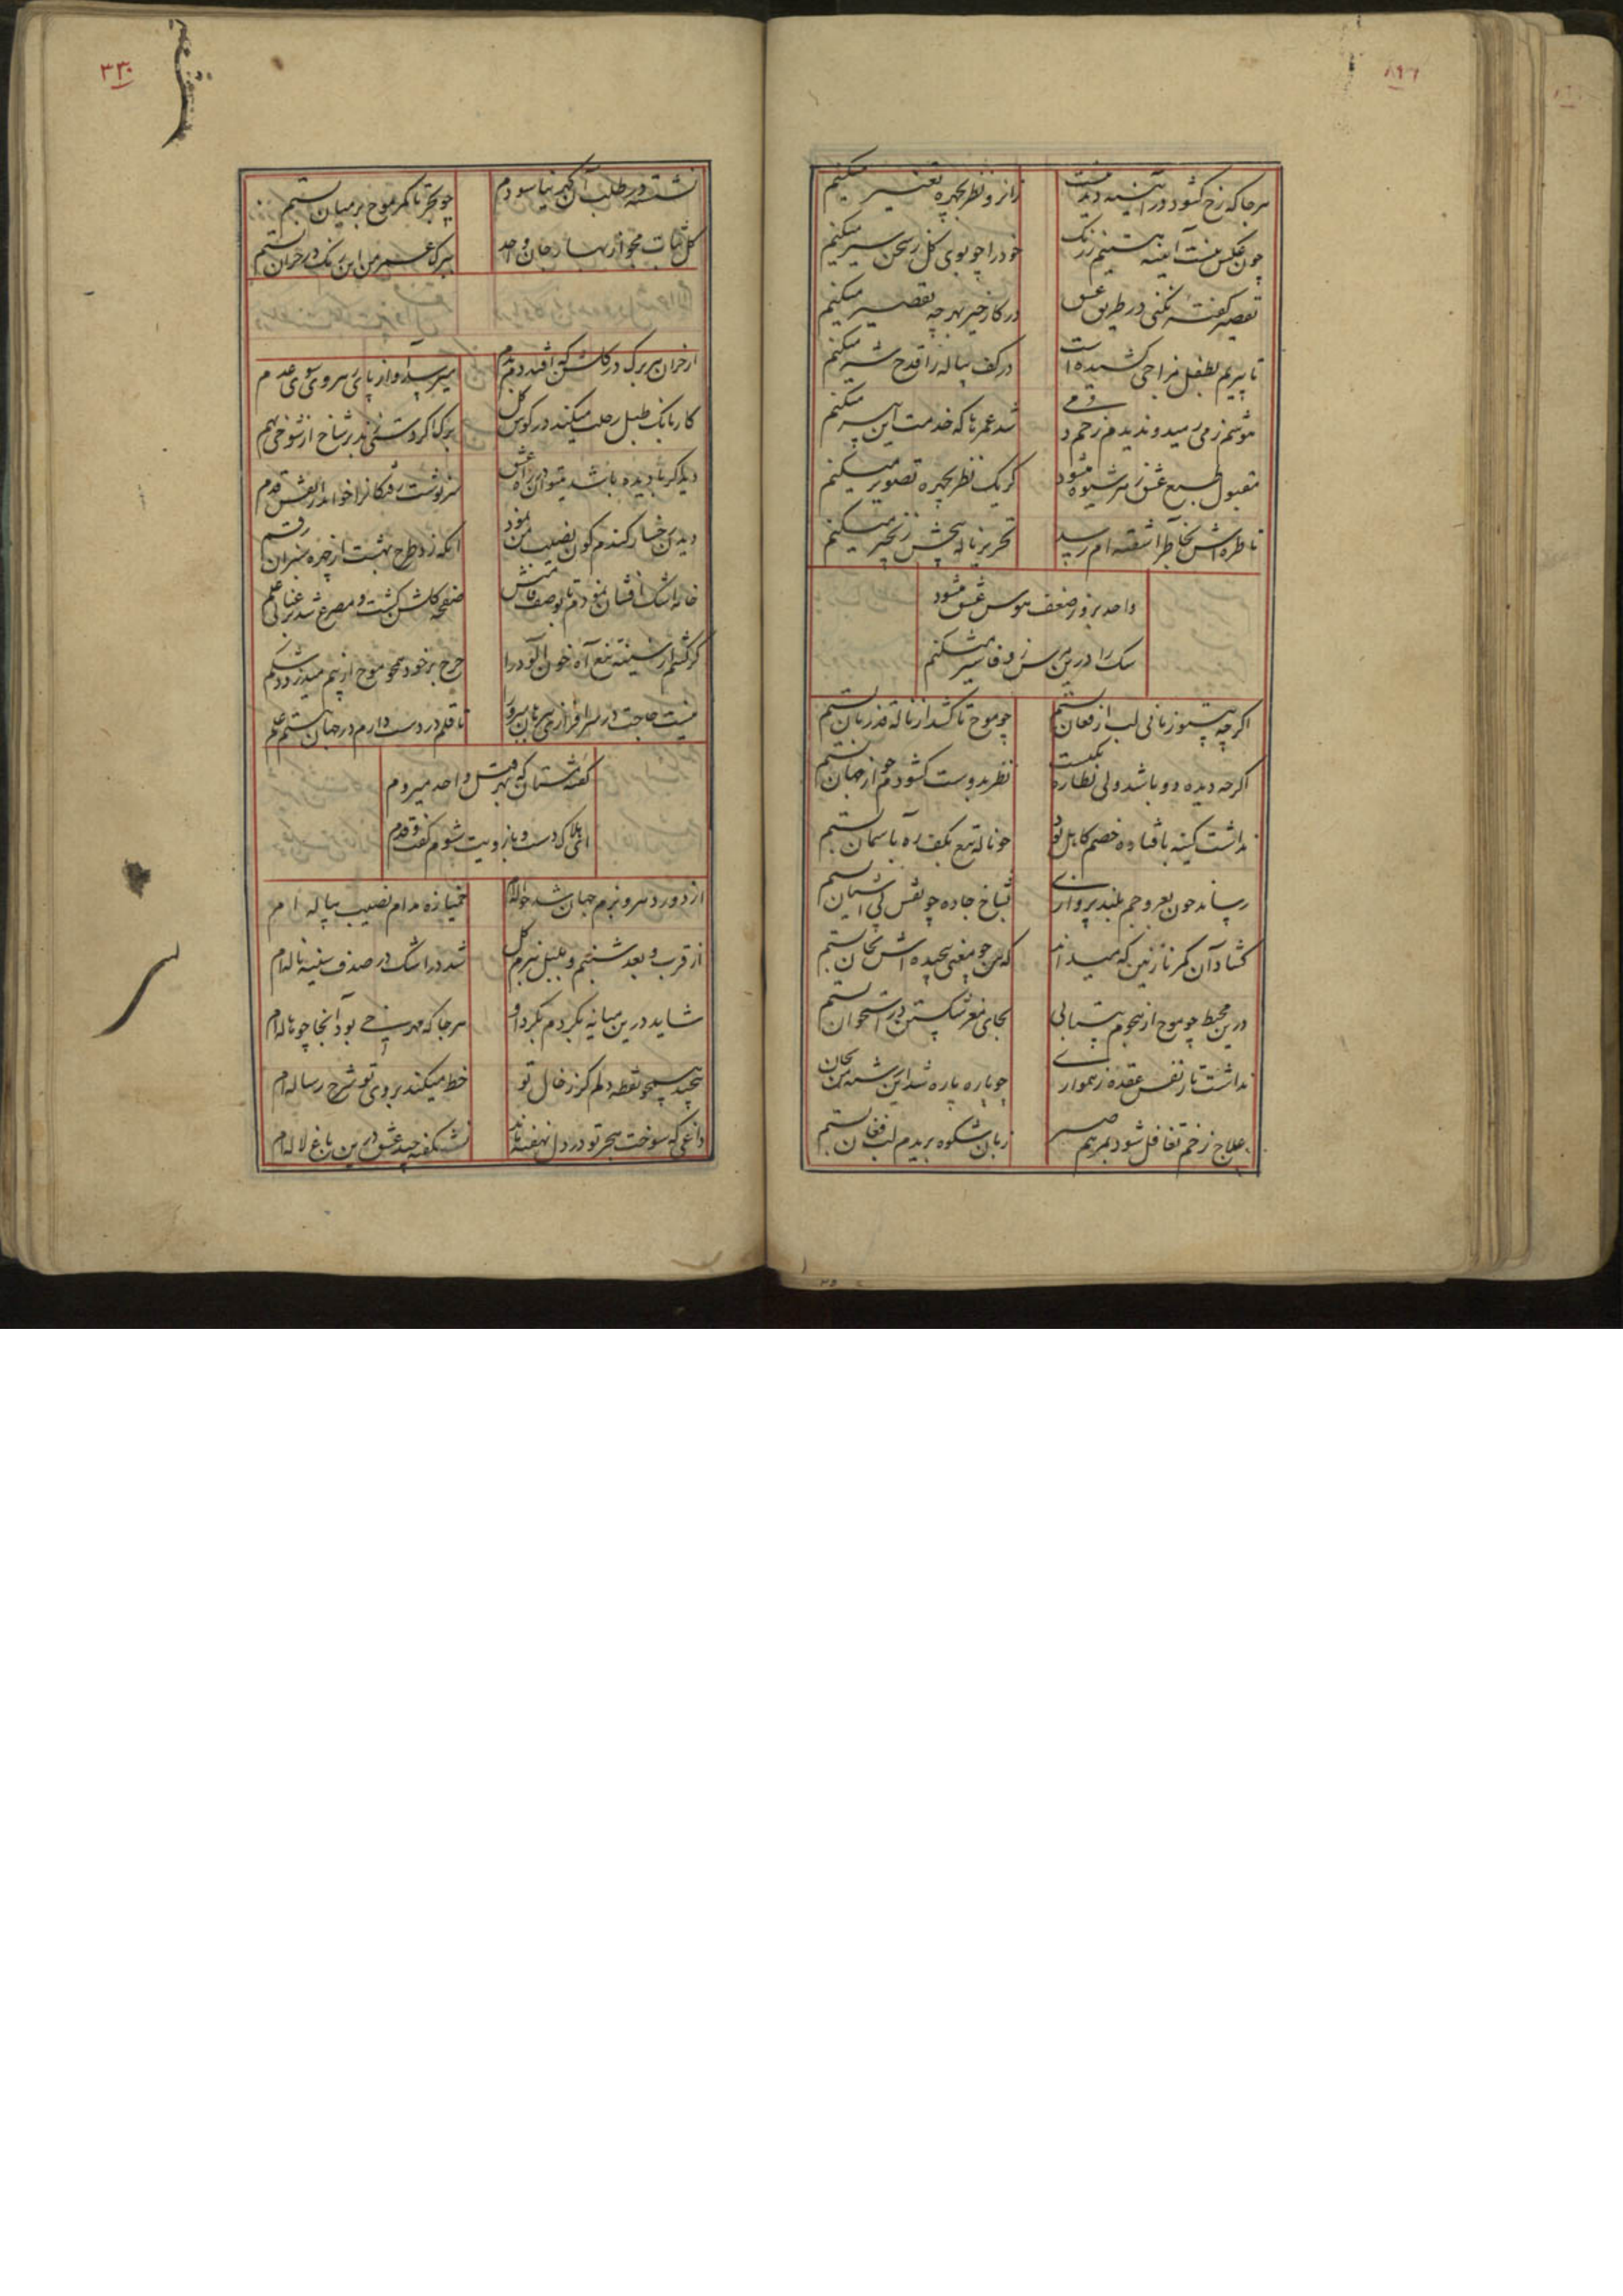 ۸۹۶
هرجا که رخ کشود در آئینه دیدنیست
زانرو نظر بچهره تغییر میکنیم
چون عکس آئینه نیستیم زرنک
خود را چو بوی کل زسخن سیر میکنیم
تقصیر کفته نکنی در طریق عشق
در کار خیر بهرچه تقصیر میکنیم
تا پیریم لطفل مزاجی کشیده است
در کف پیاله را قدح شیر میکنیم
موسم زمی رمید و ندیدم زخم
شد عمرها که خدمت این پیر میکنیم
مقبول طبع عشق زهر شیوه میشود
کر یک نظر بچهره تصویر میکنیم
تا طره اش بخاطر آشفته ام رسید
تحریر ناله بخش زنجیر میکنیم
واحد بزور ضعف هوس عشق میشود
سک را درین مرس زوفا سیر میکنیم
اکرچه نیست زبانی لب از فغان بستم
چو موج تا کشد از ناله قد زبان بستم
اکرچه دیده دو باشد ولی نظاره یکیست
نظر بدوست کشودم چو از جهان بستم
نداشت کینه بافتاده خصم کاهل تو
چو ناله تیغ بکف ره باسمان بستم
رساند چون بعروجم بلند پروازی
بشاخ جاده چو نقش پی آشیان بستم
کشاد آن کمر نازنین که میداند
که من چو معنی پیچیده اش بجان بستم
درین محیط چو موج از هجوم بیتابی
بجای مغز شکستن در استخوان بستم
نداشت تار نفس عقده ز همواری
چو پاره پاره شد این رشته من بجان بستم
علاج زخم تغافل شود بمرهم صبر
زبان شکوه بریدم لب فغان بستم
۳۳۰
نشسته در طلب آن کهر نیاسودم
چو بحر تا کمر موج بر میان بستم
کل ثبات مجو از بهار جان واحد
ببرک عمر من این رنک در خزان بستم
از خزان هر برک در کلشن که افتد دمبدم
میرسد آواز پای رهروی سوی عدم
کار بانک طبل رحلت میکند در کوش کل
برکها کر دستی زند بر شاخ از شوخی بهم
دیده کر نادیده باشد میتوان در راه عشق
سرنوشت رفتکانرا خواند از نقش قدم
دیدن رخسار کندم کون نصیب من نمود
آنکه زد طرح بهشت از چهره سبزان رقم
خامه اشک افشان نمودم تا بوصف قامتش
صفحه کلشن کشت و مصرع شد برعنائی علم
کر کشم از سینه تیغ آه خون آلود را
چرخ بر خود همچو موج از بیم میدزدد شکم
نیست حاجت در سرافرازی سربازان مرا
تا قلم در دست دارم در جهان هستم علم
کفتمش مستان که بهر قتل واحد میروم
ای بلاکردان دست و بازویت شوم کفت و قدم
از دور دهر و بزم جهان شد حواله ام
خمیازه مدام نصیب پیاله ام
از قرب و بعد شبنم و بلبل ببزم کل
شد در اشک در صدف سینه ناله ام
شاید درین میانه بکردم بکرد او
هرجا که مهر رخی بود آنجا چو هاله ام
پیچیده همچو نقطه دلم کرز خال تو
خط میکند بروی تو شرح رساله ام
داغی که سوخت هجر تو در دل نهفته ماند
نشکفته چید عشق درین باغ لاله ام